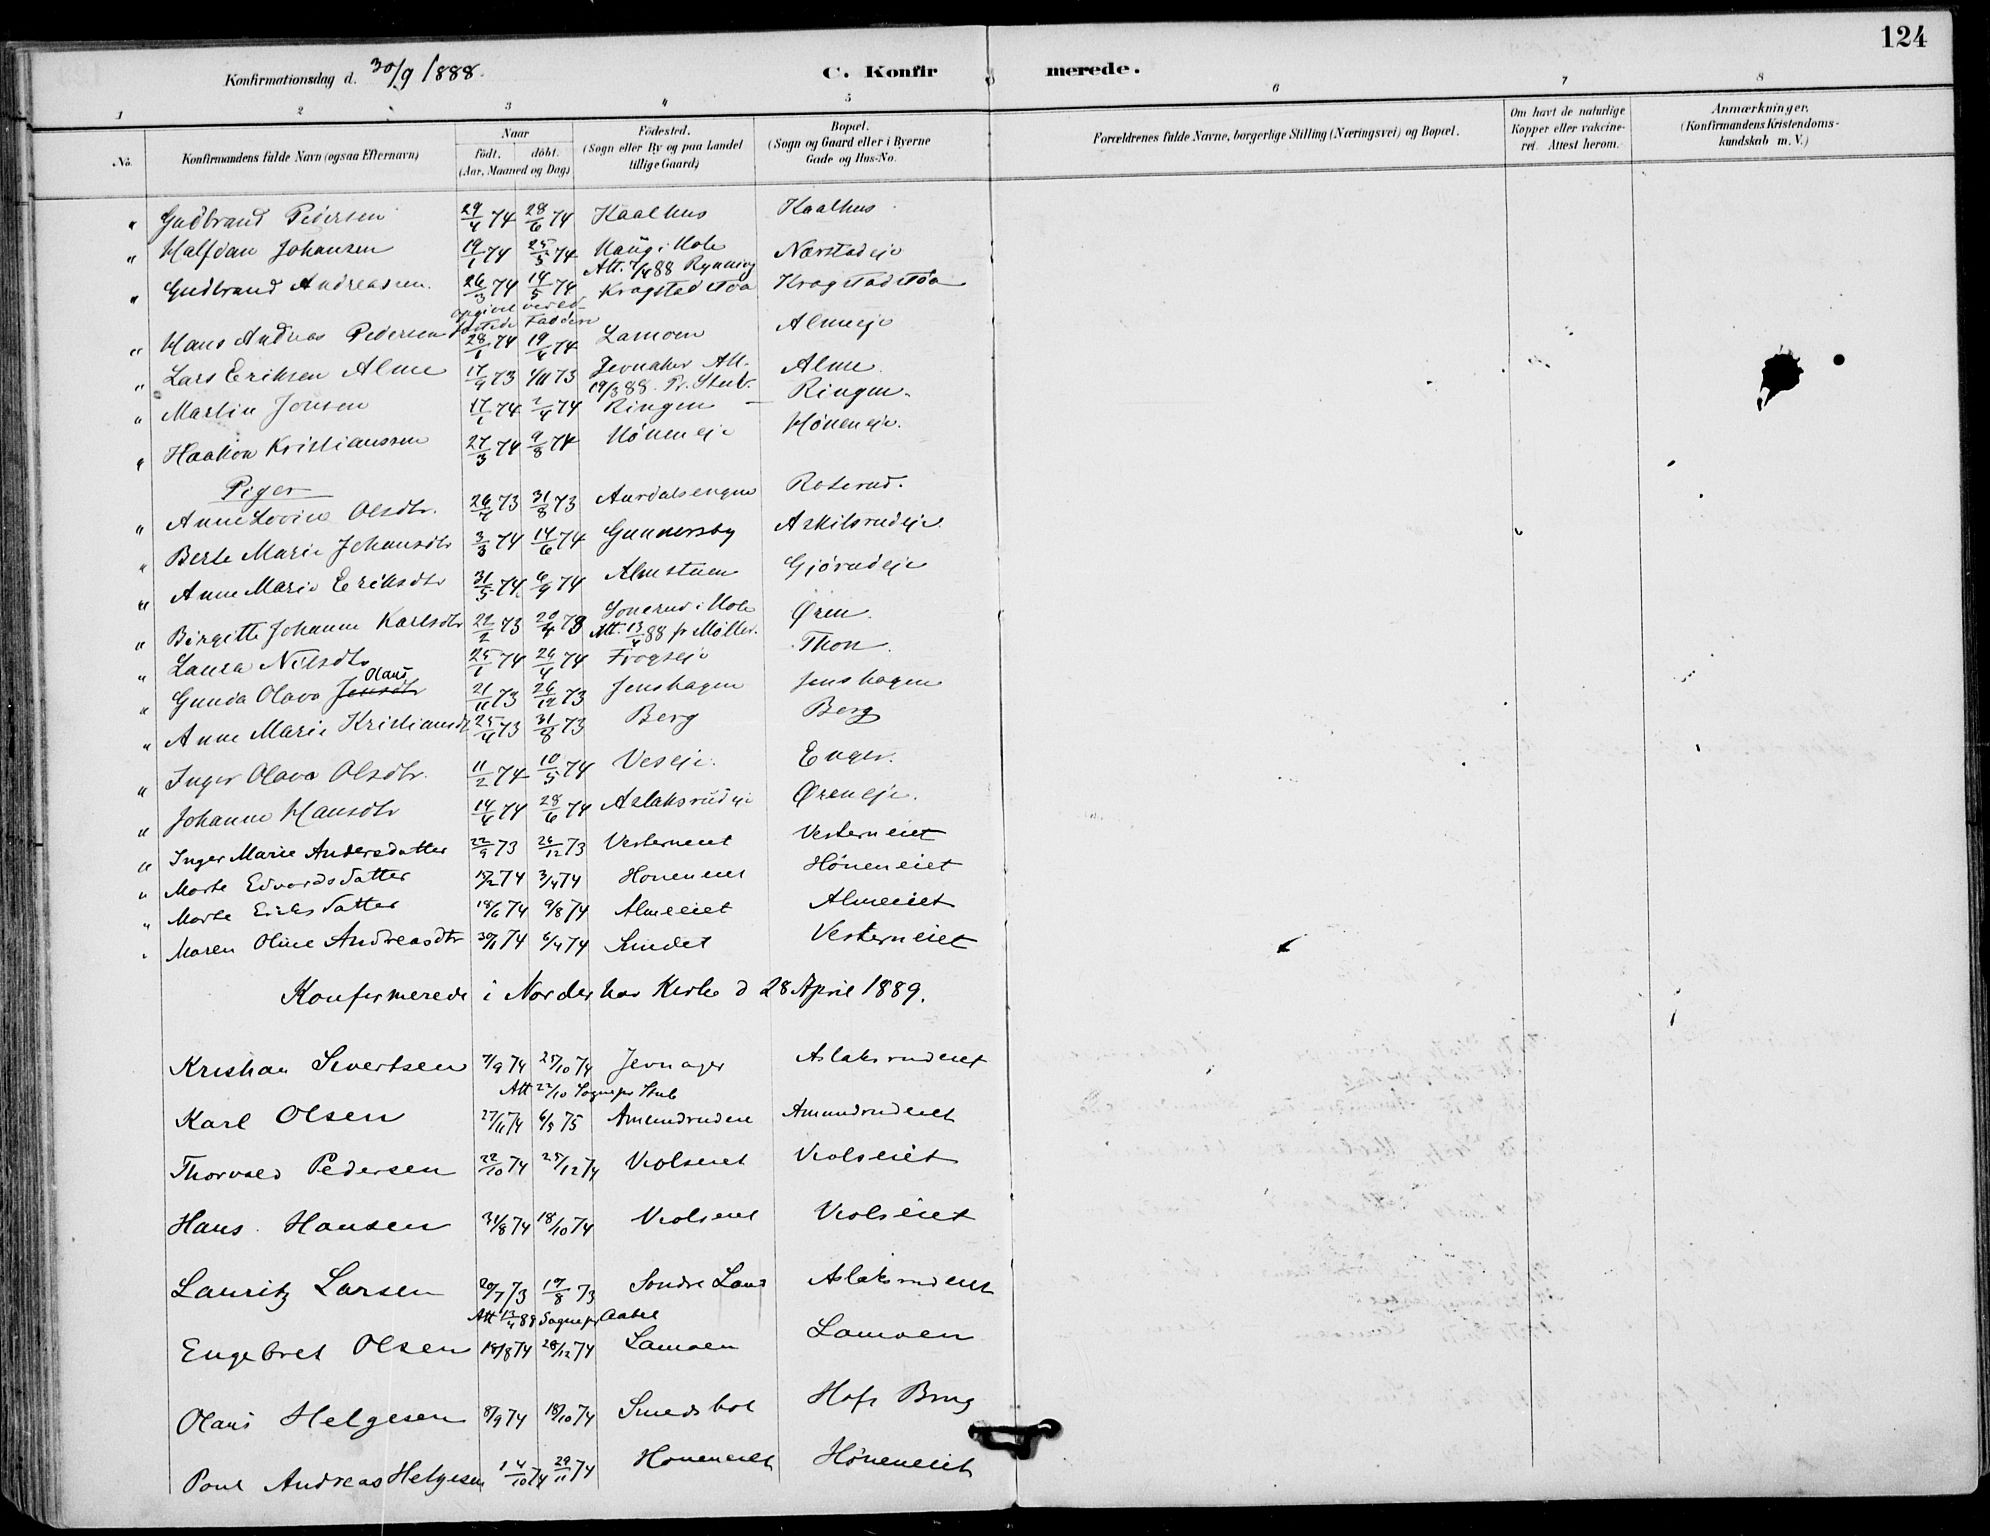 124
Konfirmationsdag d. 30/9 1888.
C. Konfirmerede.
1 2 3 4 5 6 7 8
No. Konfirmandens fulde Navn (ogsaa Efternavn) Naar født. døbt. (Aar, Maaned og Dag) Fødested. (Sogn eller By og paa Landet tillige Gaard) Bopæl. (Sogn og Gaard eller i Byerne Gade og Hus-No. Forældrenes fulde Navne, borgerlige Stilling (Næringsvei) og Bopæl. Om havt de naturlige Kopper eller vakcineret. Attest herom. Anmærkninger. (Konfirmandens Kristendomskundskab m. V.)
" Gudbrand Pedersen 29/4 74 28/6 74 Kaalhus Kaalhus
" Halfdan Johansen 19/1 74 25/5 74 Haug i Hole Nærstadeje
Att. 7/4 88 Rynning
" Gudbrand Andreassen 26/3 74 14/5 74 Kragstadstøa Kragstadstøa
" Hans Andreas Pedersen 28/1 74 19/4 74 Lamoen Almeje
" Lars Eriksen Alme 17/9 73 1/11 73 Jevnaker Att. Alme
19/3 88. Pr. Stub.
" Martin Jensen 17/1 74 2/4 74 Ringen Ringen
" Haakon Kristianssen 27/3 74 9/8 74 Høneneje Høneneje
Piger
" Anne Lovise Olsdtr. 26/7 73 31/8 73 Aurdalsengen Roserud.
" Berte Marie Johansdtr 3/3 74 14/6 74 Gunnersby Askilsrudeje
" Anne Marie Eriksdtr 31/5 74 6/9 74 Almstuen Gjørudeje
" Birgitte Johanne Karlsdtr 22/2 73 20/4 73 Sonerud i Hole Øren
Att. 13/4 88 pr Møller.
" Laura Nilsdtr 25/1 74 26/4 74 Frogseje Thon
" Gunda Olava Jensdtr Olaus 21/11 73 26/12 73 Jenshagen Jenshagen
" Anne Marie Kristiansdt 25/4 73 31/8 73 Berg Berg
" Inger Olava Olsdtr. 11/2 74 10/5 74 Veseje Enger.
" Johanne Hansdtr 14/4 74 28/6 74 Aslaksrudeje Øreneje.
" Inger Marie Andersdatter 22/9 73 26/12 73 Vesterneiet Vesterneiet
" Marte Edvardsdatter 15/2 74 3/4 74 Honeneiet Høneneiet
" Marte Eriksdatter 18/6 74 9/8 74 Almeeiet Almeeiet
" Maren Oline Andreasdtr 30/1 74 6/4 74 Vesterneiet
Konfirmerede i Norderhov Kirke d 28 April 1889.
Kristian Sivertsen 7/9 74 25/10 74 Jevnager Aslaksrudeiet
Att 22/10 Sognepr Stub
Karl Olsen 27/11 74 6/3 75 Amundrudeie Amundrudeiet
Thorvald Pedersen 22/10 74 25/12 74 Violseiet Violseiet
Hans Hansen 31/8 74 18/10 74 Violseiet Violseiet
Lauritz Larsen 20/7 73 17/8 73 Søndre Land Aslaksrudeiet
Att 12/4 88 Sognepr Aabel
Engebret Olsen 18/8 74 28/12 74 Lamoen Lamoen
Olaus Helgesen 8/9 74 18/10 74 Smedsbøl Hofs Brug
Poul Andreas Helgesen 14/10 74 29/11 74 Honeneiet Høneneiet